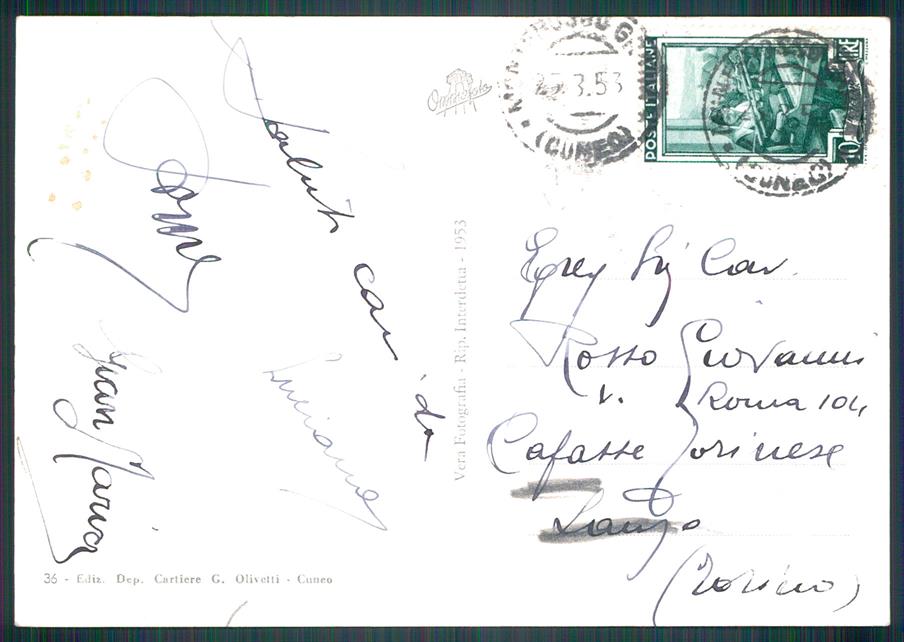 Saluti cari da
Luciana
Gian Maria
36 - Ediz. Dep. Cartiere G. Olivetti - Cuneo
Vera Fotografia - Rip. Interdetta - 1953
3.53
(CUNEO)
POSTE ITALIANE
LIRE
10
(CUNEO)
Egreg Sig Cav.
Rosso Giovanni
v. Roma 104
Cafasse Torinese
Lanzo
(Torino)